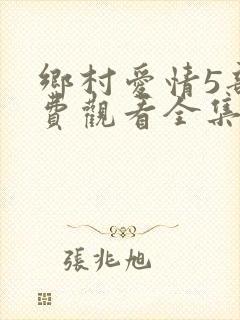 鄉村愛情5
費觀看全集
張兆旭